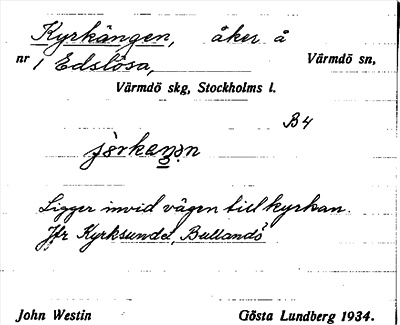 Kyrkängen, åker å
nr 1 Edslösa, Värmdö sn,
Värmdö skg, Stockholms l.
B4
Ligger invid vägen till kyrkan.
Jfr Kyrksundet, Bullandö
John Westin Gösta Lundberg 1934.